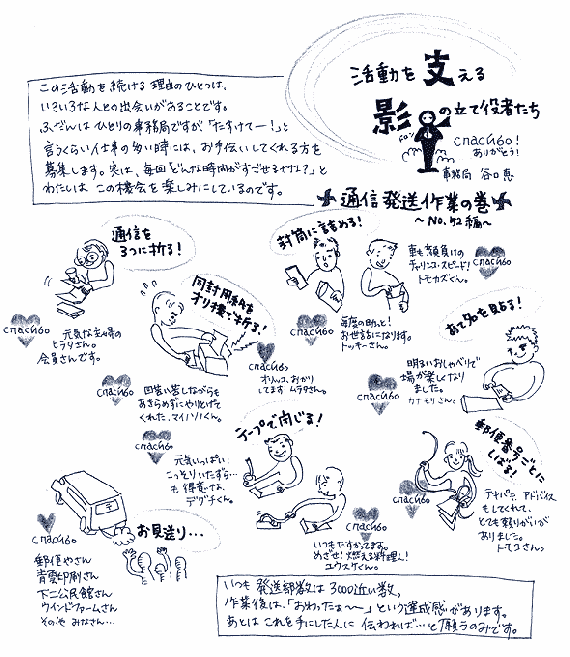 この活動を続ける理由のひとつは、
いろいろな人との出会いがあることです。
ふだんはひとりの事務局ですが「たすけてー!」と
言うくらい仕事の多い時には、お手伝いしてくれる方を
募集します。実は、毎回「どんな時間がすごせるかな?」と
わたしは この機会を楽しみにしているのです。
活動を支える
影の立て役者たち
спасибо!
ありがとう!
事務局 谷口 恵
通信発送作業の巻
〜No.42編〜
通信を
3つに折る!
спасибо
元気な主婦の
ヒラリさん。
会員さんです。
同封用紙を
オリ機で折る!
спасибо
オリッコ、おかり
してます ムラタさん。
спасибо
四苦八苦しながらも
あきらめずにやりとげて
くれた、マイハリくん。
封筒に詰める!
спасибо
毎度の助っ人!
お世話になります。
トッキーさん。
車も顔負けの
チャリンコ・スピード!
トモカズくん。
спасибо
あて名を見よる!
спасибо
明るいおしゃべりで
場が楽しくなり
ました。
カナモリさん
テープで閉じる!
спасибо
元気いっぱい
こっそりいたずら…
も得意だよ、
デグチくん。
спасибо
いつもたすかってます。
めざせ!燃える料理人!
ユウスケくん。
郵便番号ごとに
しばる!
спасибо
テキパキ アドバイス
もしてくれて、
とても頼りがいが
ありました。
トモコさん
お見送り…
спасибо
郵便やさん
青雲印刷さん
下二公民館さん
ウインドファームさん
そのや みなさん…
いつも 発送部数は 3000近い数。
作業後は、「おわったぁ〜〜」という達成感があります。
あとは これを手にした人に 伝われば…と願うのみです。